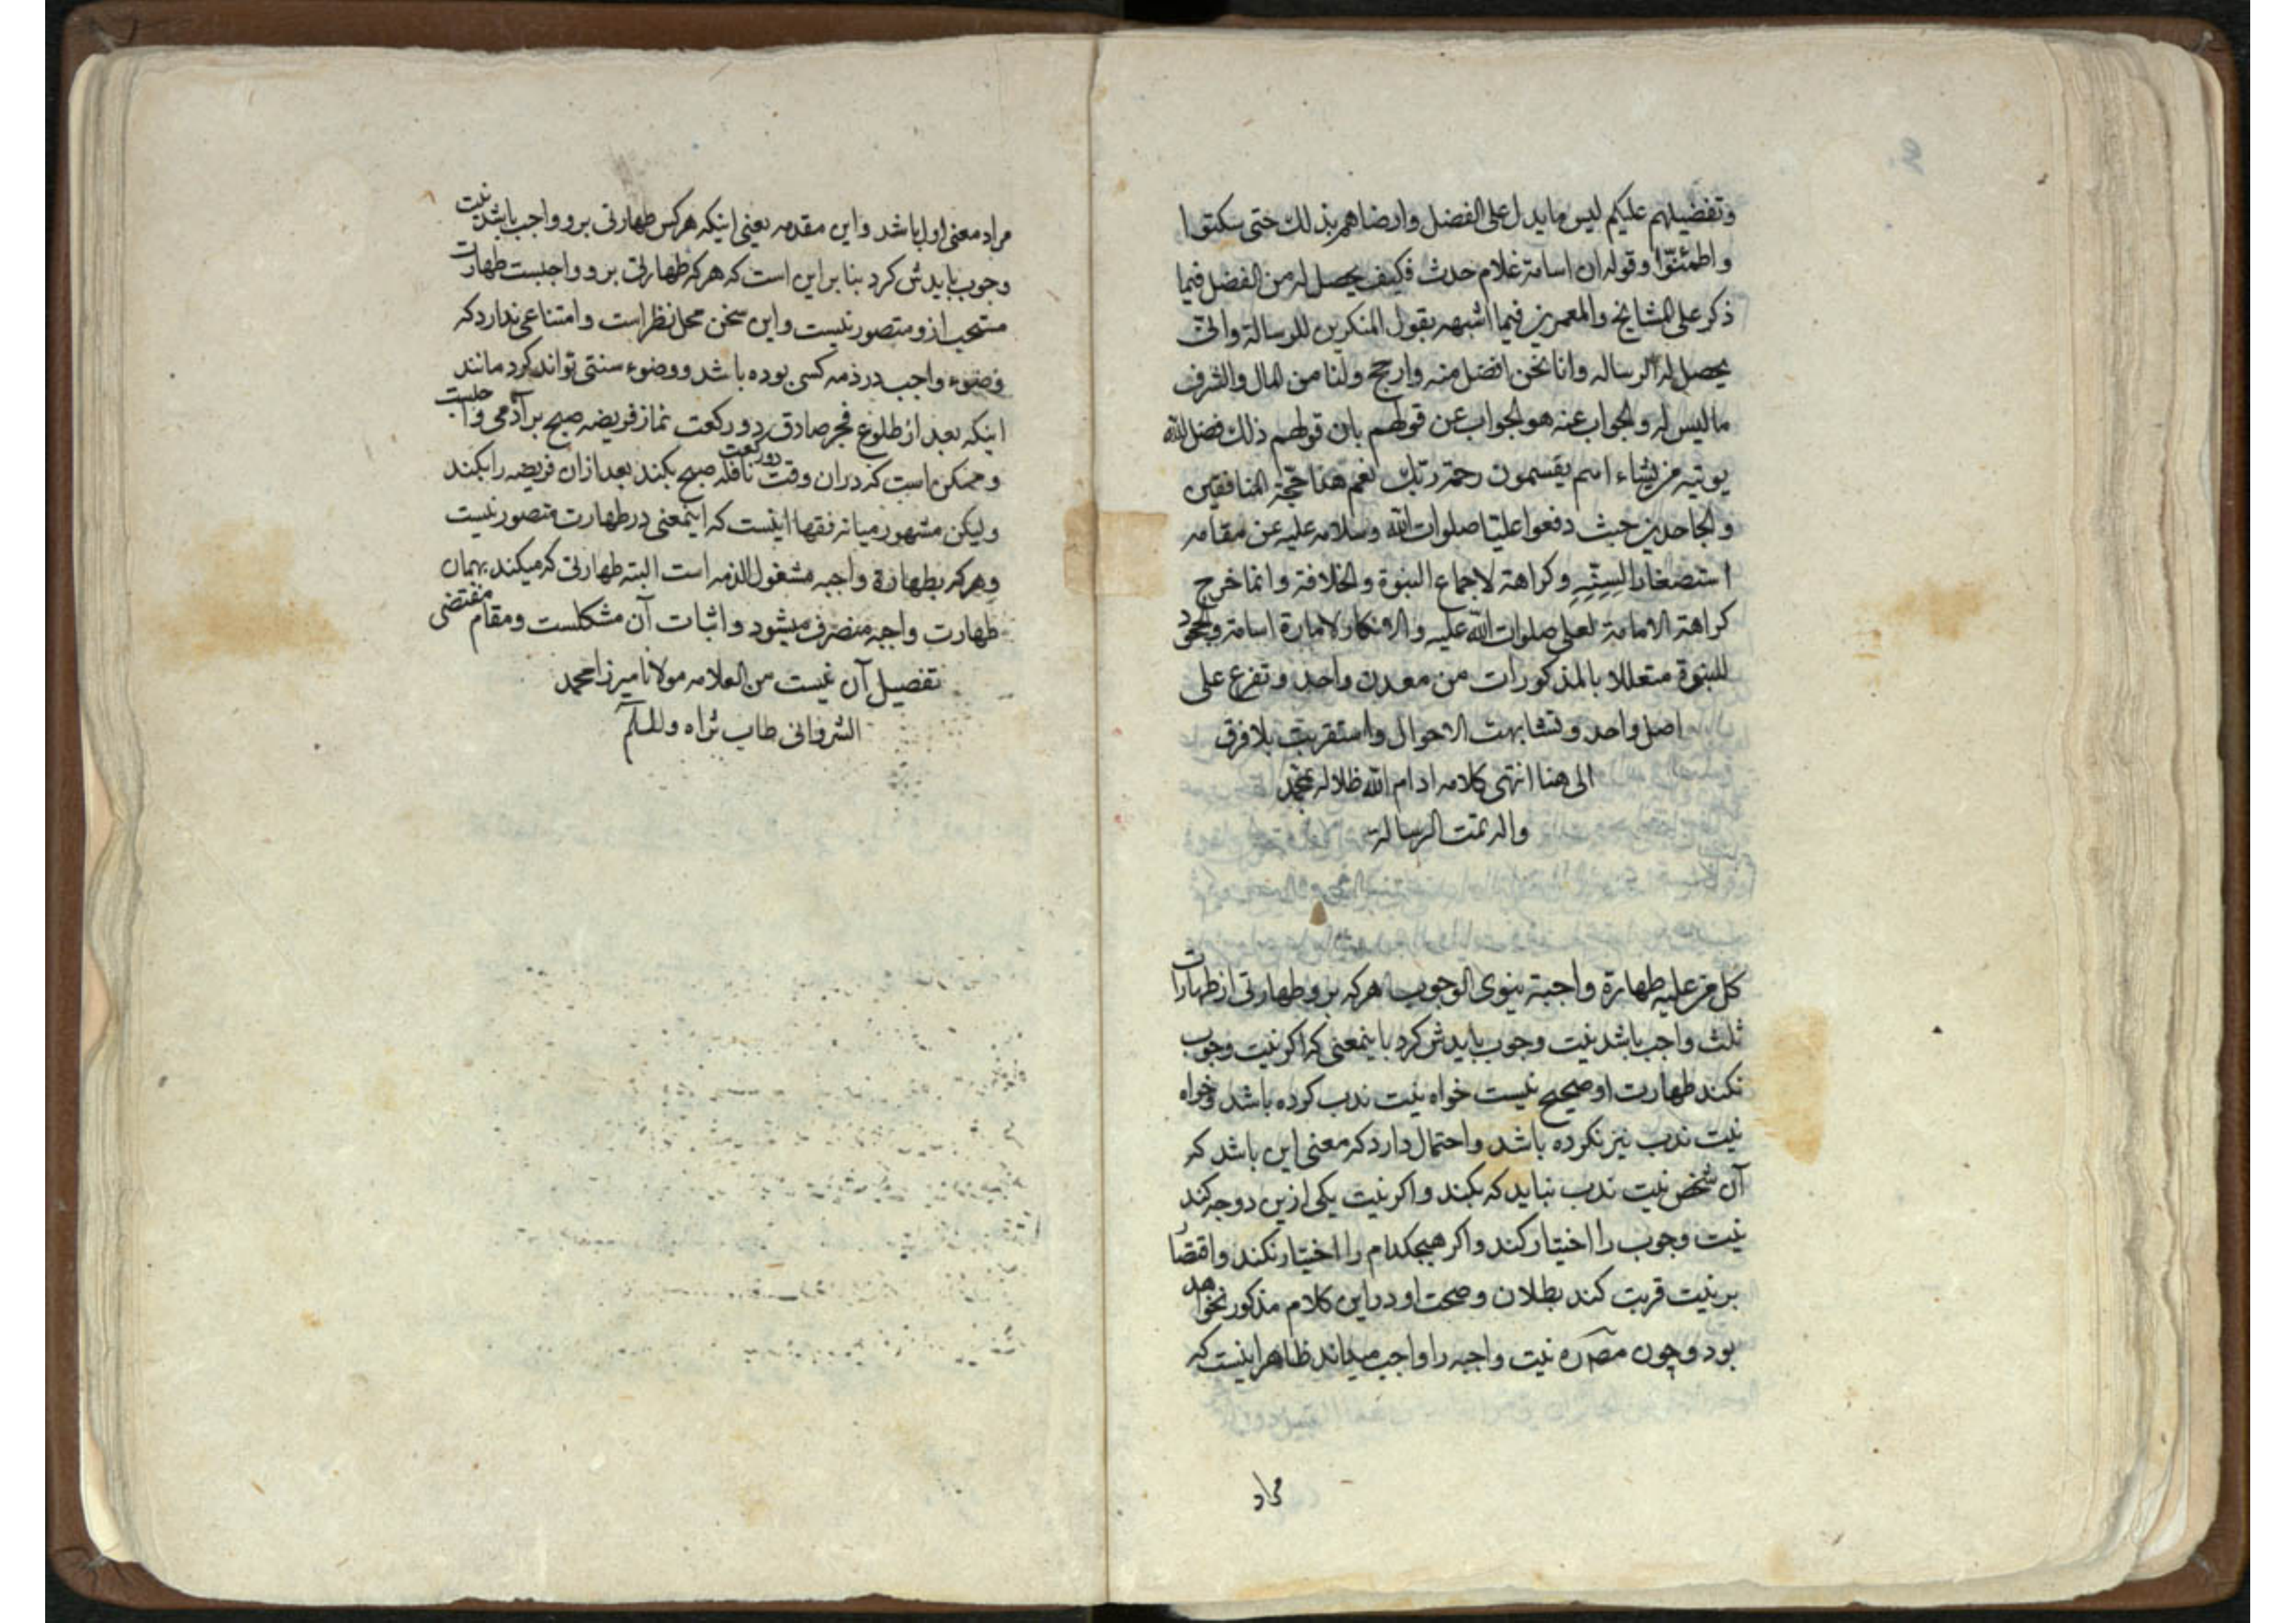 وتفضيلهم عليكم ليس ما يدل على الفضل وارضاهم بذلك حتى سكتوا
واطمئنّوا وقوله ان اسامة غلام حدث فكيف يحصل له من الفضل فيما
ذكر على المشايخ والمعمرين فيما اشبهه بقول المنكرين للرسالة وانّى
يحصل له الرساله وانا نحن افضل منه وارجح ولنا من المال والشرف
ما ليس له والجواب عنه هو الجواب عن قولهم بان قولهم ذلك فضل الله
يوتيه من يشاء اهم يقسمون رحمة ربّك نعم هذا حجّة المنافقين
والجاحدين حيث دفعوا عليّا صلوات الله وسلامه عليه عن مقامه
استصغارا لسِنّه وكراهة لاجماع النبوة والخلافة وانما خرج
كراهة الامامة لعلى صلوات الله عليه والانكار لامارة اسامة والجحود
للنبوة متعللا بالمذكورات من معدن واحد وتفرع على
اصل واحد وتشابهت الاحوال واستقربت بلا فرق
الى هنا انتهى كلامه ادام الله ظلاله بمحمد
واله تمت الرسالة
كل من عليه طهارة واجبة ينوى الوجوب هركه برو طهارتى از طهارات
ثلث واجب باشد نيت وجوب بايدش كرد باينمعنى كه اكر نيت وجوب
نكند طهارت او صحيح نيست خواه نيت ندب كرده باشد وخواه
نيت ندب نيز نكرده باشد واحتمال دارد كه معنى اين باشد كه
آن شخص نيت ندب نبايد كه بكند واكر نيت يكى ازين دو وجه كند
نيت وجوب را اختيار كند واكر هيچكدام را اختيار نكند واقتصار
بر نيت قربت كند بطلان وصحت او در اين كلام مذكور نخواهد
بود وچون نيت واجبه را واجب ميداند ظاهر اينست كه
مراد
مراد معنى اول باشد واين مقدمه يعنى اينكه هركس طهارتى برو واجب باشد نيت
وجوب بايدش كرد بنا براين است كه هركه طهارتى برو واجبست طهارت
مستحب ازو متصور نيست واين سخن محل نظر است وامتناعى ندارد كه
وضوء واجب در ذمه كسى بوده باشد ووضوء سنتى تواند كرد مانند
اينكه بعد از طلوع فجر صادق دو ركعت نماز فريضه صبح بر آدمى واجبست
وممكن است كه دران وقت دو ركعت نافله صبح بكند بعد ازان فريضه را بكند
وليكن مشهور ميانه فقها اينست كه اينمعنى در طهارت متصور نيست
وهركه بطهارة واجبه مشغول الذمه است البته طهارتى كه ميكند بهمان
طهارت واجبه منصرف ميشود واثبات آن مشكلست ومقام مقتضى
تفصيل آن نيست من العلامه مولانا ميرزا محمد
الشروانى طاب ثراه